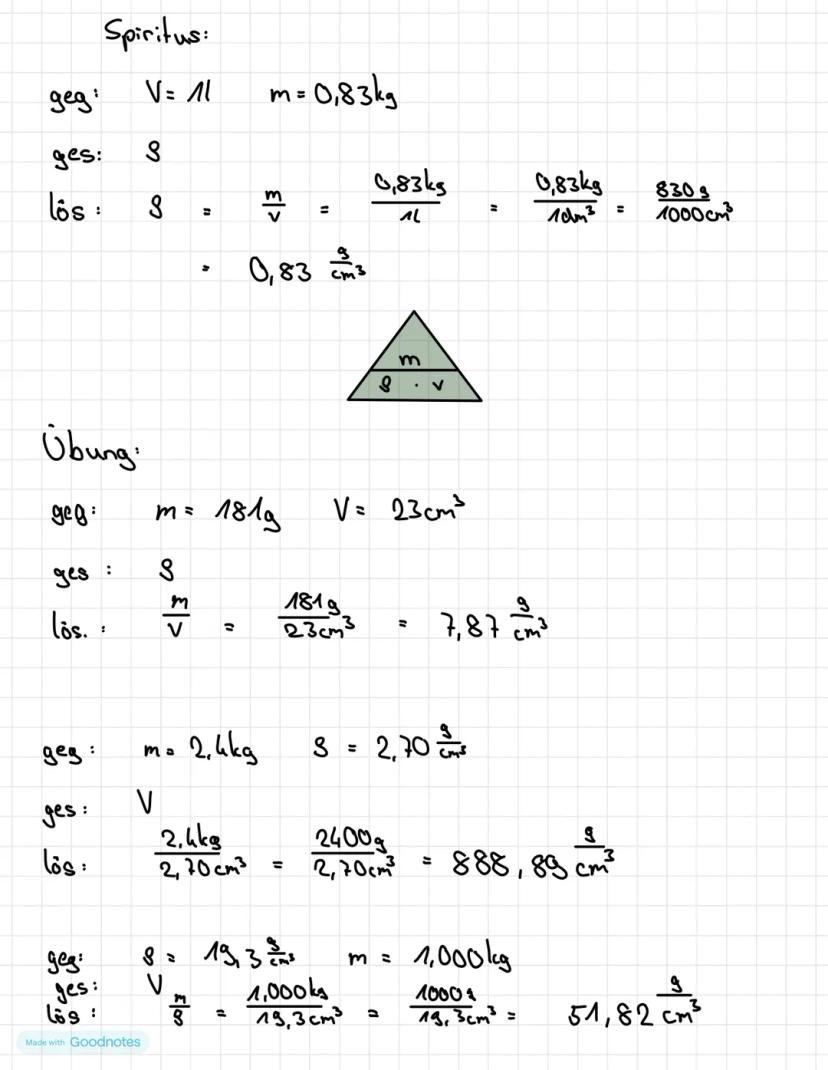 Spiritus:
geg: V = 1l m = 0,83kg
ges: ρ
lös: ρ = m/V = 0,83kg/1L = 0,83kg/1dm³ = 830g/1000cm³
= 0,83 g/cm³
m
ρ · V
Übung:
geg: m = 181g V = 23cm³
ges: ρ
lös.: m/V = 181g/23cm³ = 7,87 g/cm³
geg: m = 2,4kg ρ = 2,70 g/cm³
ges: V
lös: 2,4kg/2,70cm³ = 2400g/2,70cm³ = 888,89 g/cm³
geg: ρ = 19,3 g/cm³ m = 1,000kg
ges: V
lös: m/ρ = 1,000kg/19,3cm³ = 1000g/19,3cm³ = 51,82 g/cm³
Made with Goodnotes